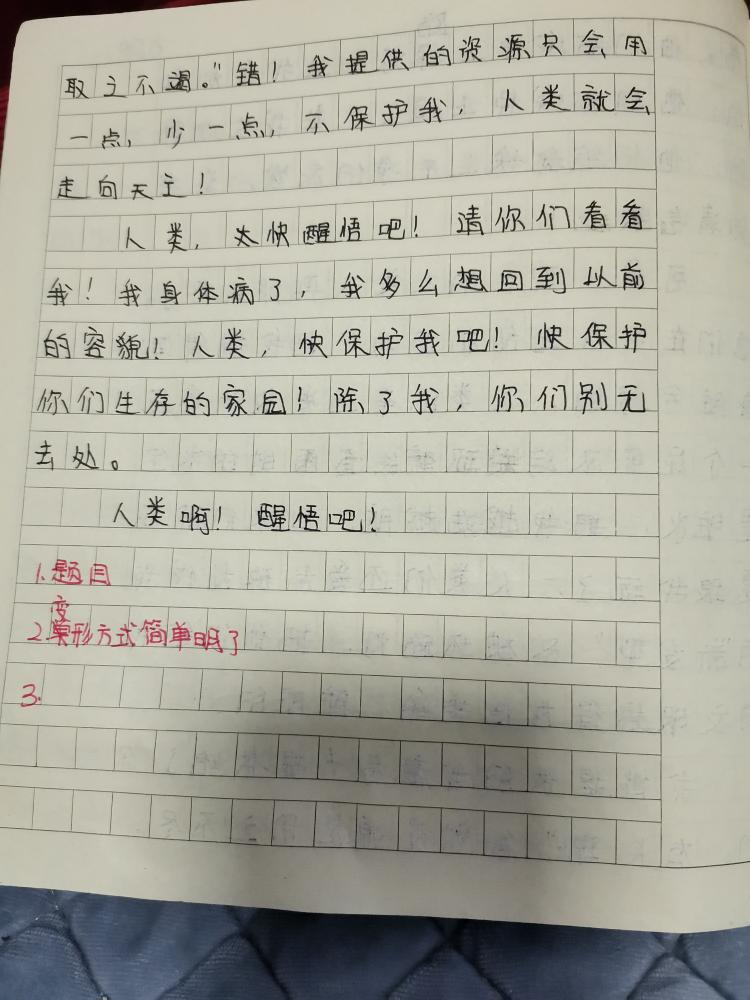 取之不遏。”错！我提供的资源只会用
一点，少一点，不保护我，人类就会
走向灭亡！
人类，太快醒悟吧！请你们看看
我！我身体病了，我多么想回到以前
的容貌！人类，快保护我吧！快保护
你们生存的家园！除了我，你们别无
去处。
人类啊！醒悟吧！
1.题目
变
2.形方式简单明了
3.